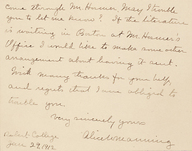 come through Mr. Homer May I trouble
you to let me know? If the literature
is waiting in Boston at Mr. Homer's
Office I would like to make some other
arrangement about having it sent.
With many thanks for your help,
and regrets that I am obliged to
trouble you.
Very sincerely yours
Alice Manning
College
June 29, 1912